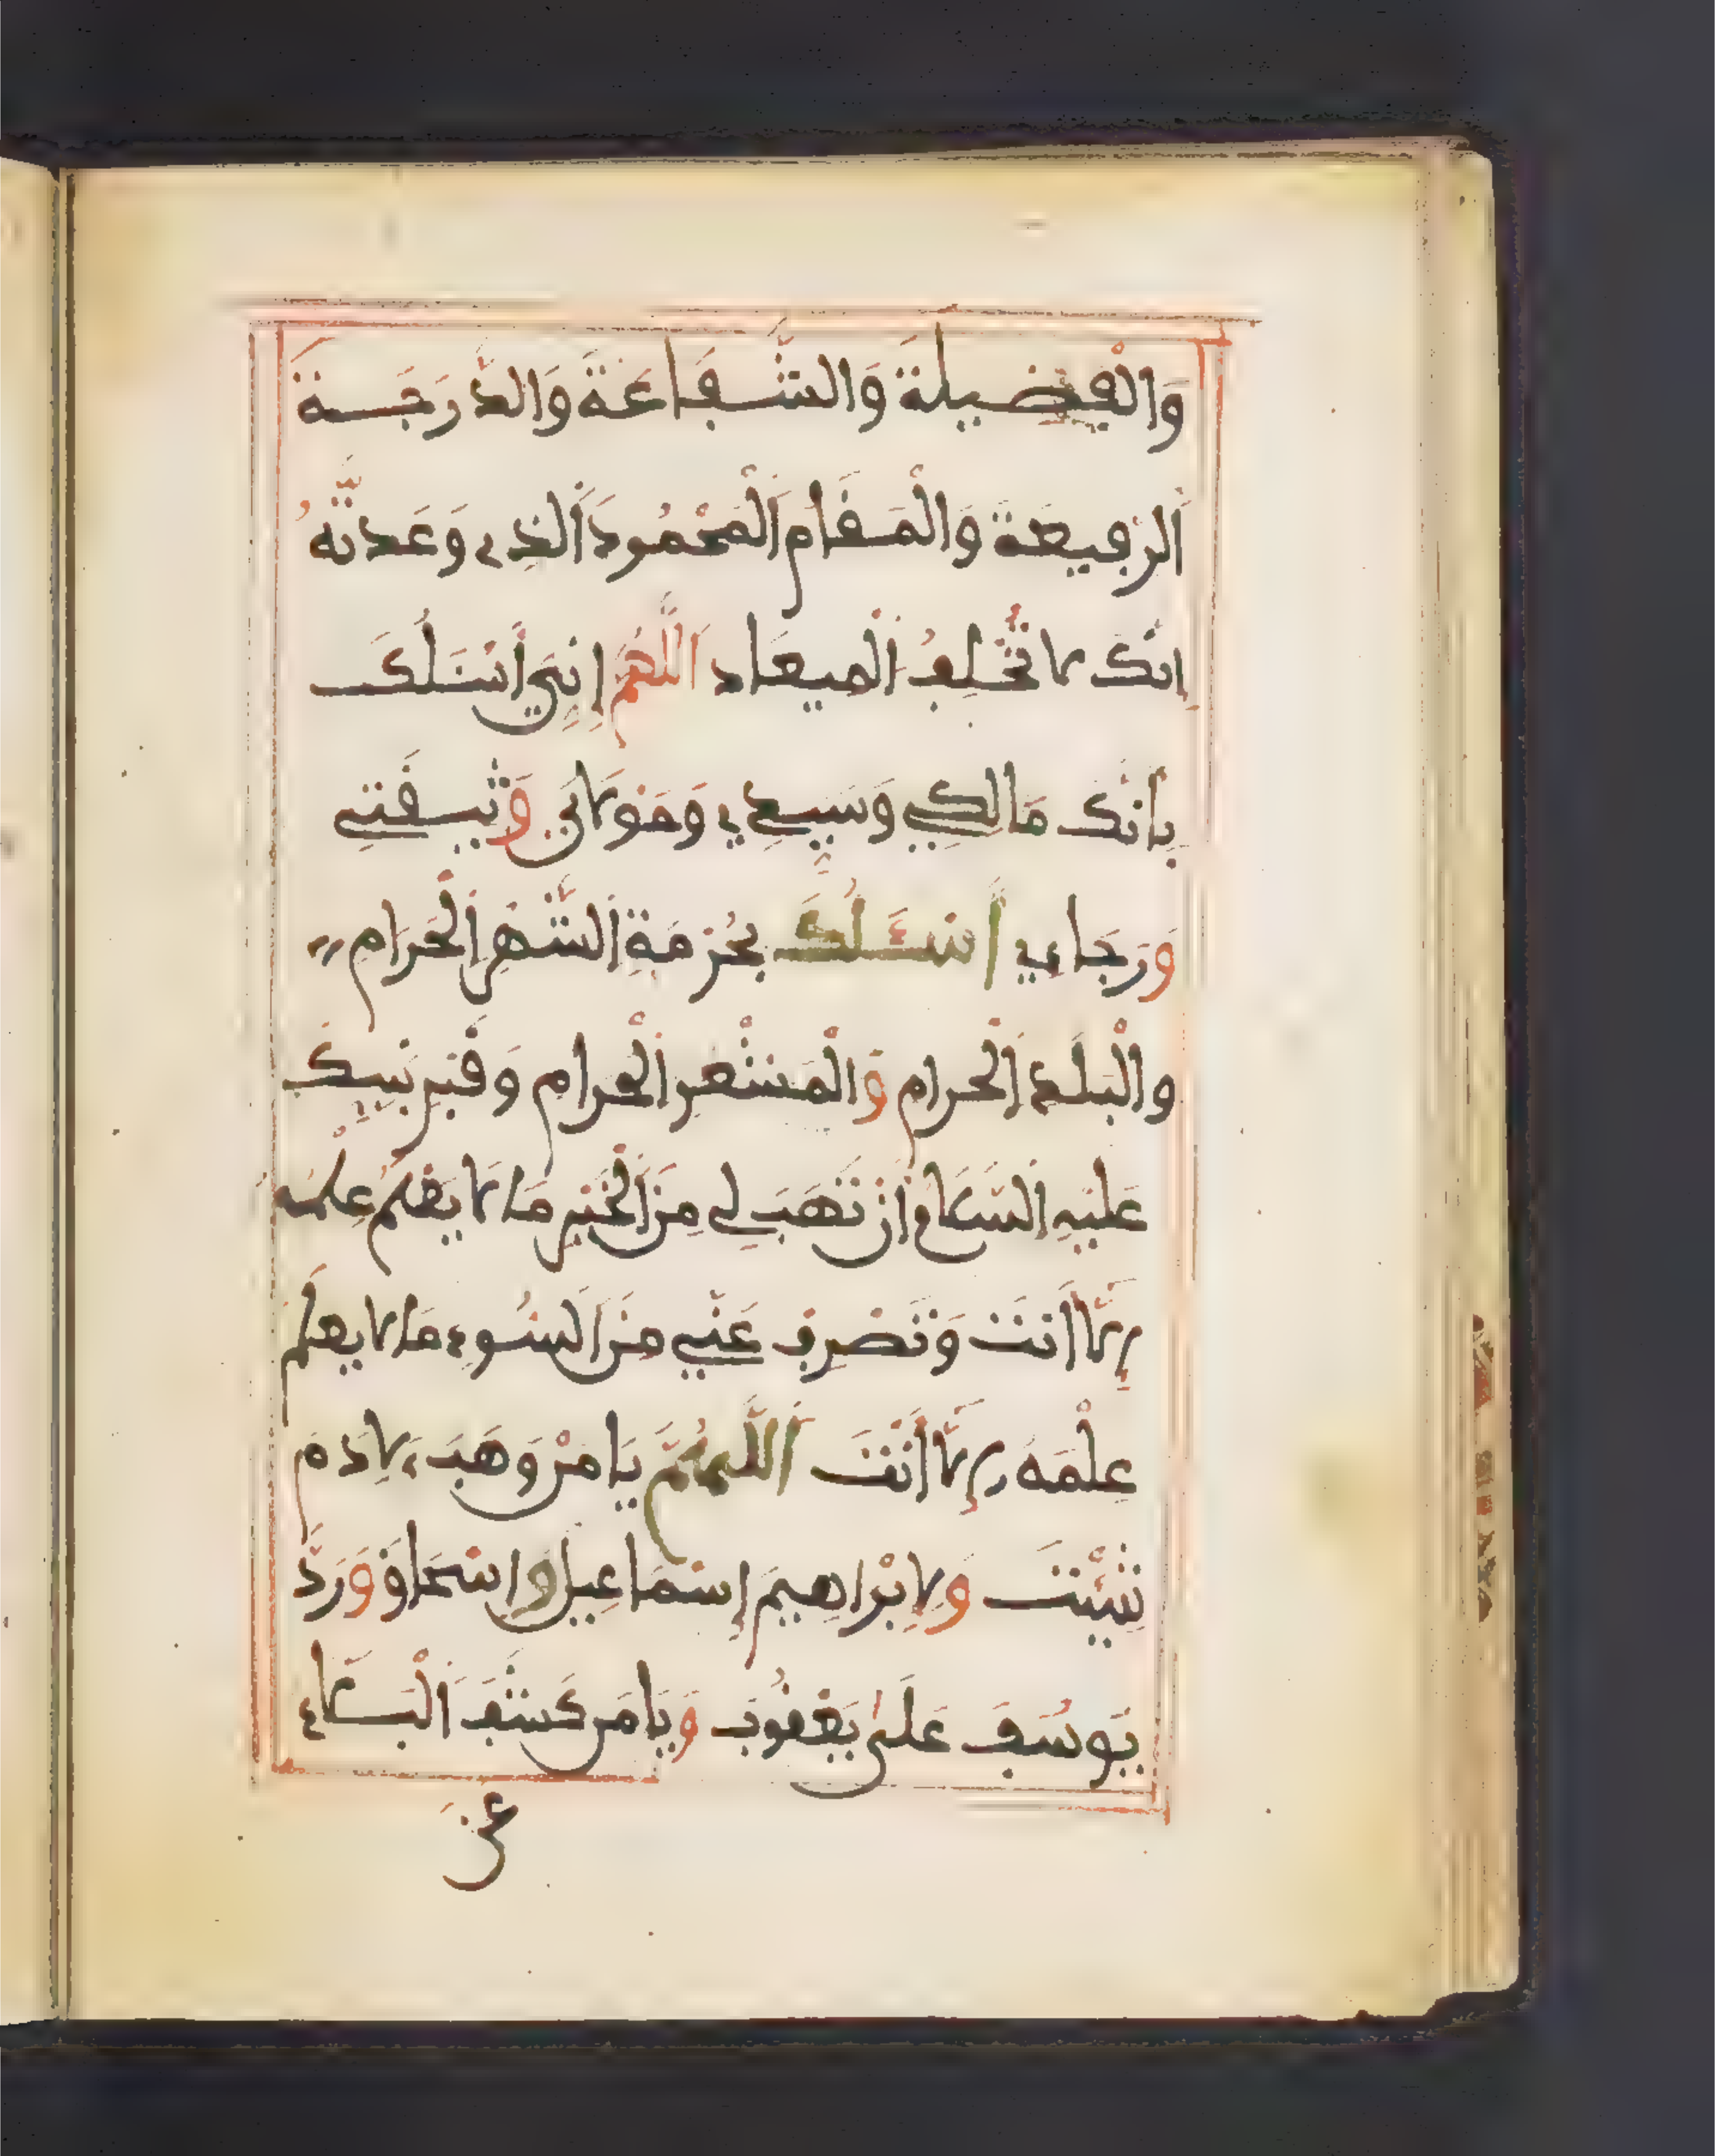 وَالْفَضِيلَةَ وَالشَّفَاعَةَ وَالدَّرَجَةَ
اَلرَّفِيعَةَ وَالْمَقَامَ اَلْمَحْمُودَ اَلَّذِي وَعَدتَّهُ
إِنَّكَ لَا تُخْلِفُ اَلْمِيعَاد اَللَّهُمَّ إِنِّي أَسْئَلُكَ
بِأَنَّكَ مَالِكِي وَسَيِّدِي وَمَوْلَايَ وَثِقَتِي
وَرَجَاءِي أَسْئَلُكَ بِحُرْمَةِ اَلشَّهْرِ اَلْحَرَامِ
وَالْبَلَدِ اَلْحَرَامِ وَالْمَشْعَرِ اَلْحَرَامِ وَقَبْرِ نَبِيِّكَ
عَلَيْهِ اِلسَّلَامُ أَنْ تَهَبَ لِي مِنَ اَلْخَيْرِ مَا لَا يَعْلَمُ عِلْمَهُ
إِلَّا أَنْتَ وَتَصْرِفَ عَنِّي مِنَ اَلسُّوءِ مَا لَا يَعْلَمُ
عِلْمَهُ إِلَّا أَنْتَ اَللَّهُمَّ يَا مَنْ وَهَبَ لِآدَمَ
شِيْئَتَ وَلِإِبْرَاهِيمَ إِسْمَاعِيلَ وَإِسْحَاقَ وَرَدَّ
يُوسُفَ عَلَى يَعْقُوبَ وَيَا مَن كَشَفَ اَلْبَلَاءَ
عَنْ